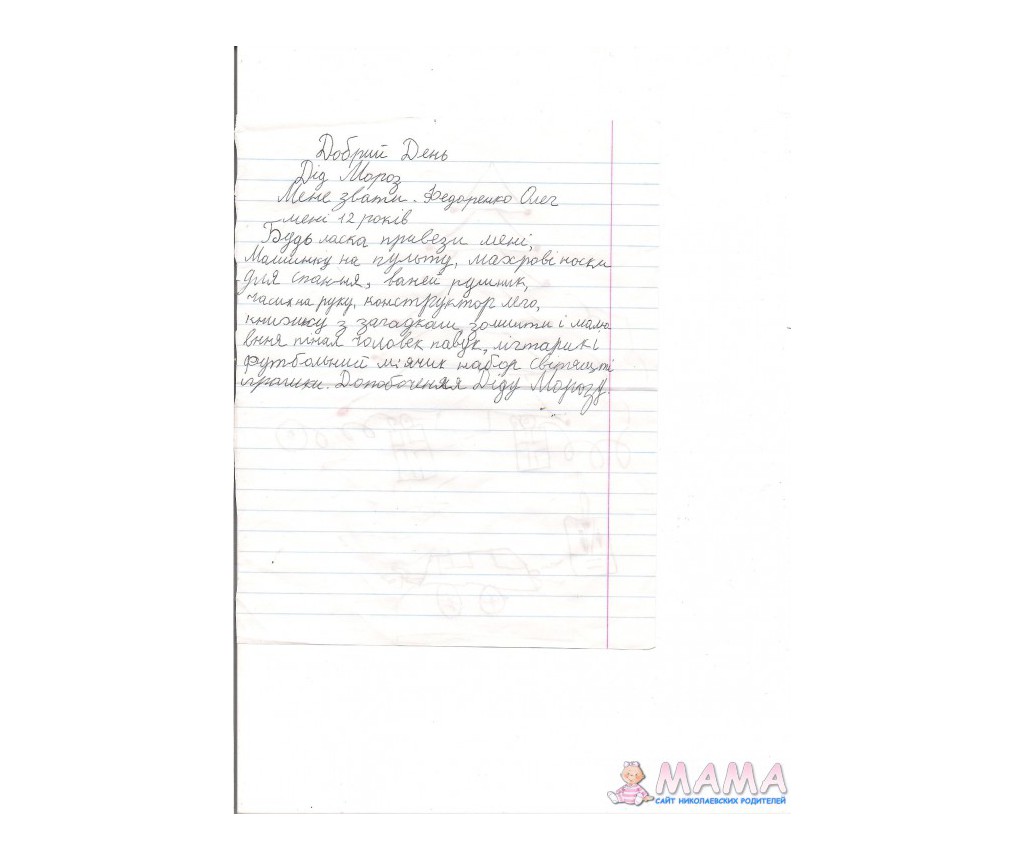 Добрий День
Дід Мороз
Мене звати. Федоренко Олег
мені 12 років
Будь ласка привези мені,
Машинку на пульту, махрові носки
для спання, ваней рушник,
часи на руку, конструктор лего,
книжку з загадкам, зошити і малю
вння пінал Человек павук, ліхтарик і
футбольний мячик набор світящті
іграшки. Допобоченяя Діду Морозу.
МАМА
САЙТ НИКОЛАЕВСКИХ РОДИТЕЛЕЙ